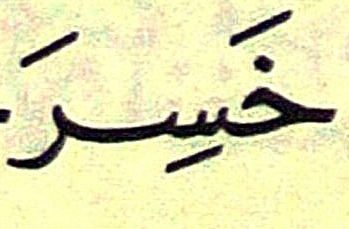 خَسِرَ